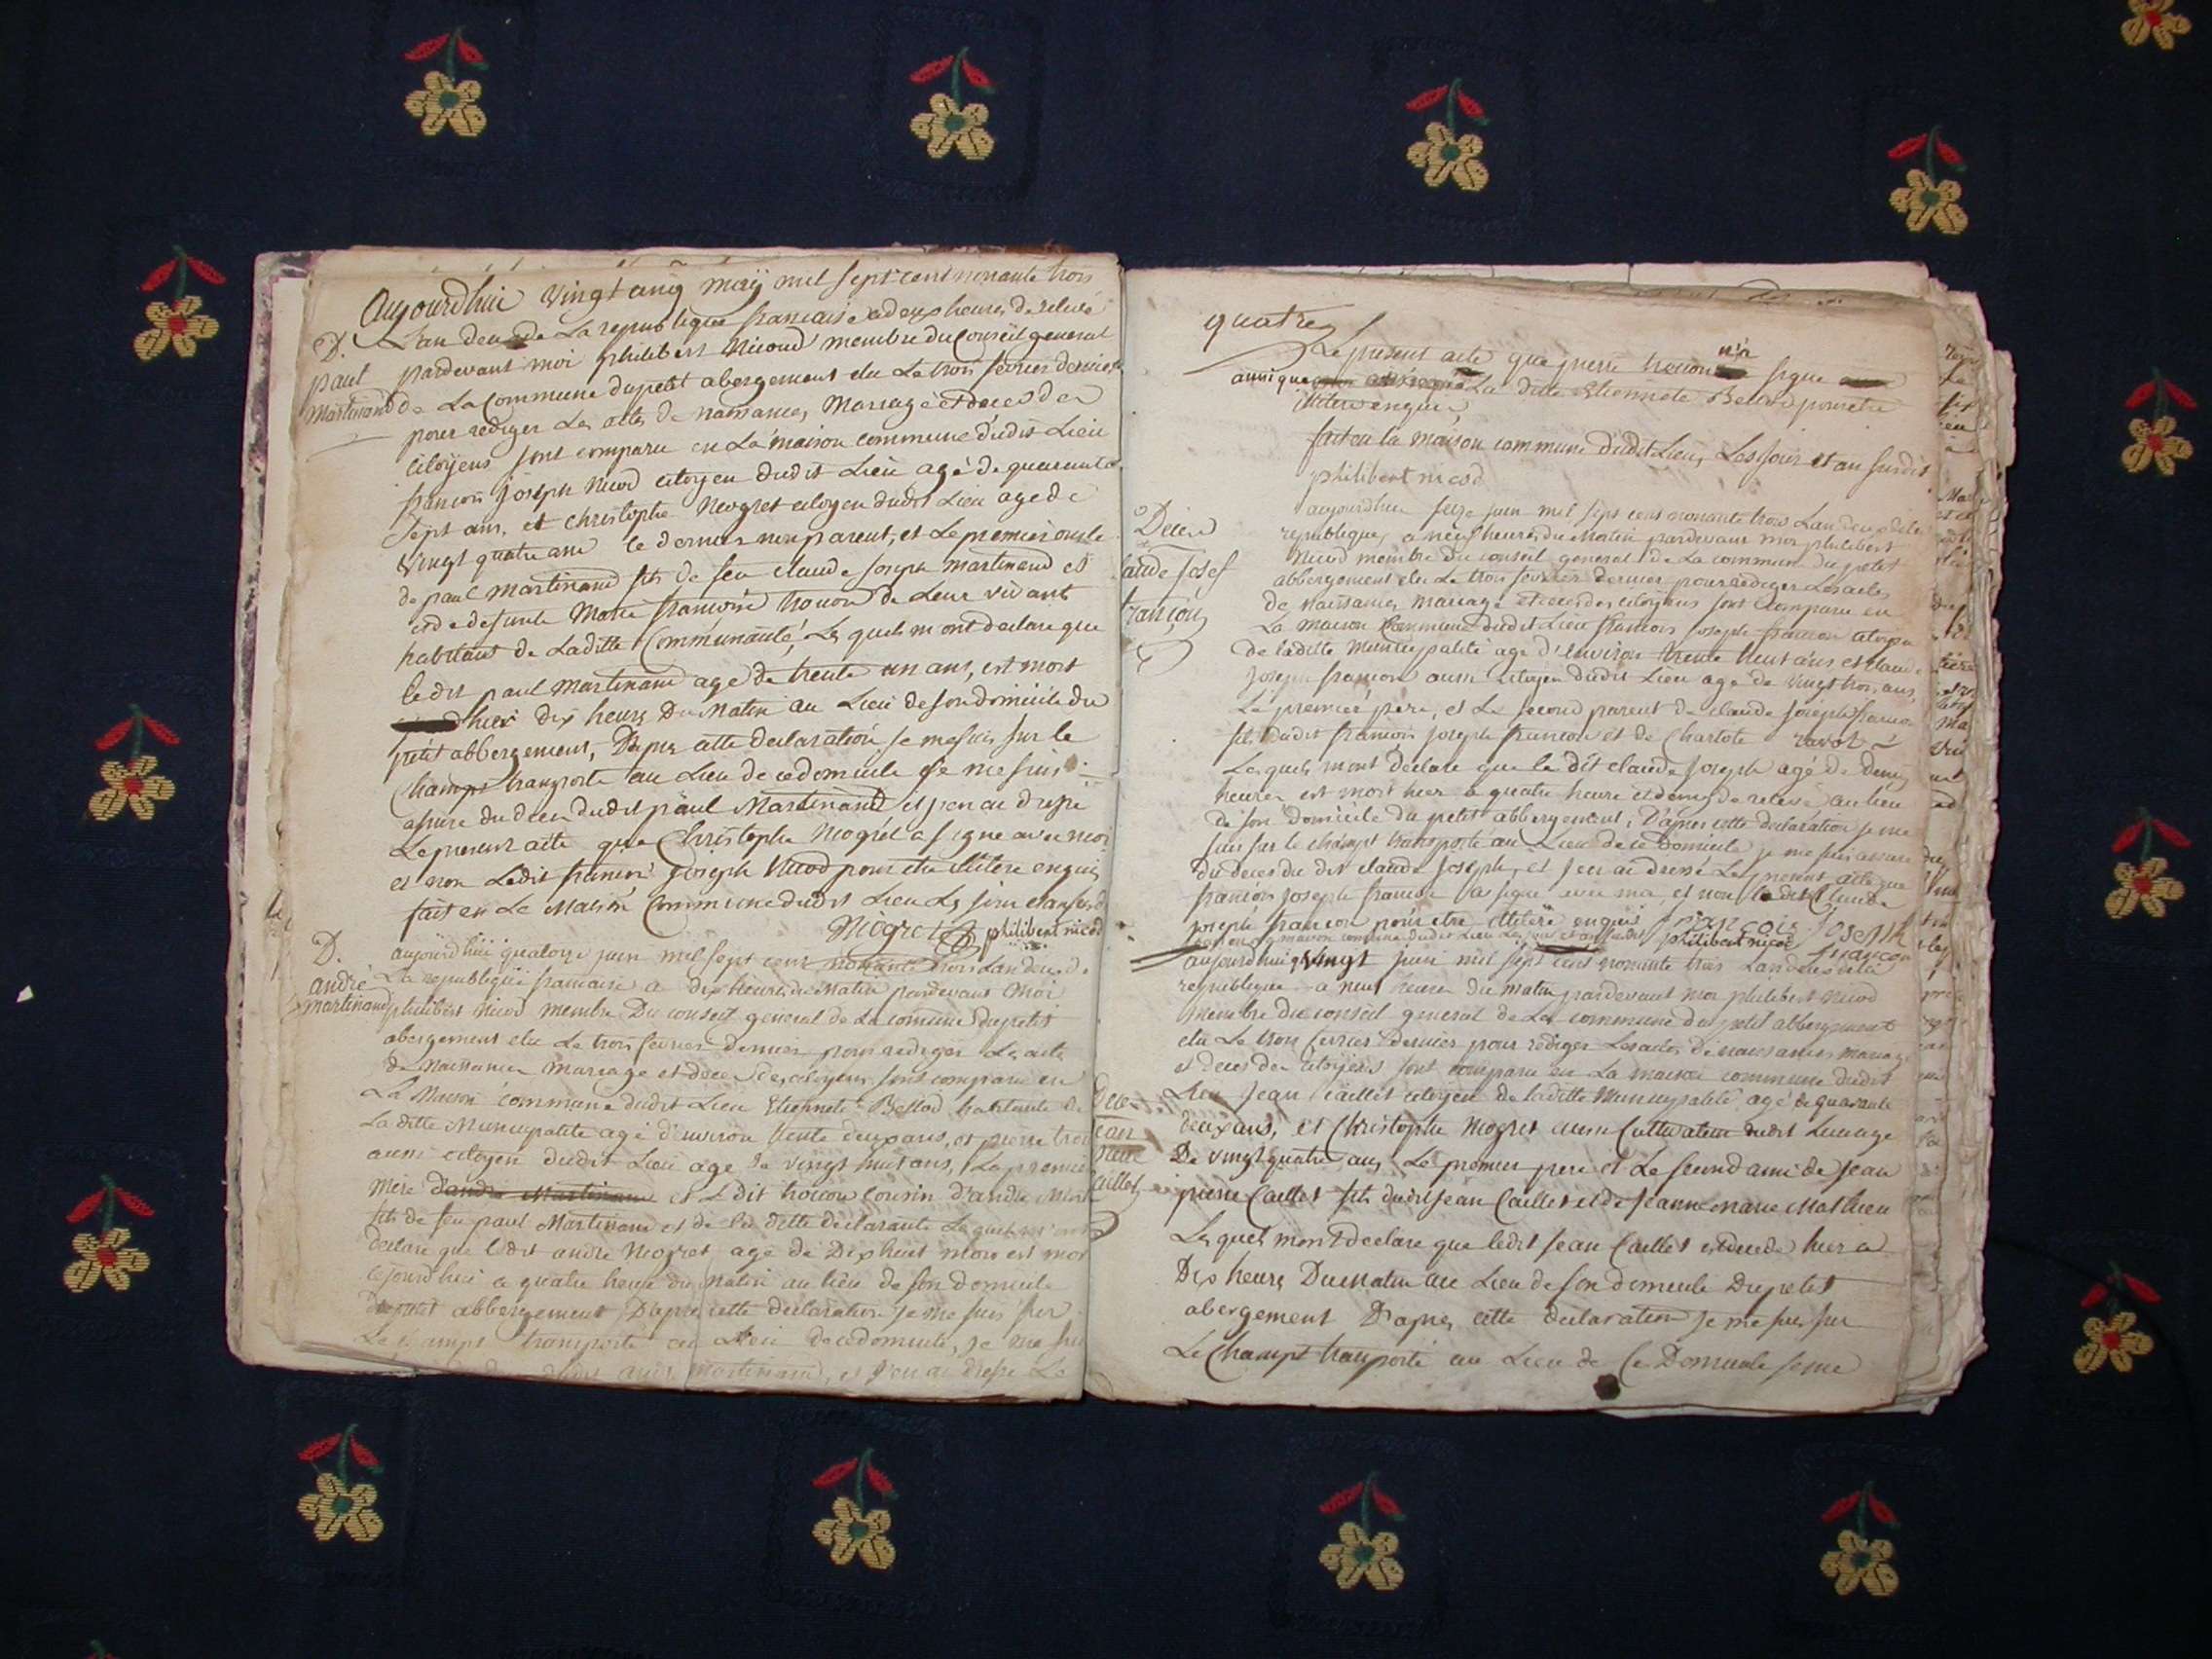 Aujourdhui vingt cinq maÿ mil sept cent nonante trois
L'an deux de La republique francaise a deux heures de relevé
D.
paul
martinand
pardevant moi philibert Nicoud membre du Conseil general
de La Commune du petit abergement elu Le trois fevrier dernier
pour rediger Les actes de naissances, Mariage et deces des
citoÿens sont comparu en La maison commune dudit Lieu
francois joseph Nicod citoÿen dudit Lieu agé de quarante
sept ans, et christophe Mogret citoyen dudit Lieu age de
vingt quatre ans le dernier non parent, et Le premier oncle
de paul martinand fils de feu claude joseph martinand et
de defunte Marie francoise trocon de Leur vivant
habitant de Laditte Communauté, Les quels m ont declare que
le dit paul martinand age de trente un ans, est mort
hier dix heures Du Matin au Lieu de son domicile du
petit abbergement, D'apres cette declaration je me suis sur le
Champt transporte au Lieu de ce domicile je me suis
assure du deces dudit paul Martinand et j'en ai dressé
Le present acte que Christophe Mogret a signe avec moi
et non Ledit francois joseph Nicod pour etre illitere enquis
fait en La Maison Commune dudit Lieu Les jour et an susd
Mogret philibert nicod
D.
andré
martinand
aujourdhui quatorze juin mil sept cent nonante trois L'an deux de
La republique francaise a dix heures du Matin pardevant Moi
philibert Nicod membre Du conseil general de La comune du petit
abergement elu Le trois fevrier dernier pour rediger Les actes
de Naissances mariage et deces des citoyens sont comparu en
La Maison commune dudit Lieu Etiennete Bellod habitante de
La ditte Municipalite agé d'environ trente deux ans, et pierre
aussi citoyen dudit Lieu age de vingt huit ans, La premiere
mere d'andre Martinand et Ledit trocon Cousin d'andre
fils de feu paul Martinand et de La ditte declarante Les quels
declare que Ledit andre Mogret age de Dix huit mois est mort
cejourdhui a quatre heure du matin au lieu de son domicile
du petit abbergement, D'apres cette declaration je me suis sur
Le champt transporte au Lieu de ce domicile, je me
dudit andré martinand, et j'en ai dressé Le
quatre
Le present acte que pierre trocon n'a signe
aussi que La dite Etiennete Bellod pour etre
illitere enquis
fait en la maison commune dudit Lieu, Les jour et an susdit
philibert nicod
Déces
laude josef
francon
aujourdhui seize juin mil sept cent nonante trois L'an deux de la
republique, a neuf heures du Matin pardevant moi philibert
Nicod membre du conseil general de La commune du petit
abbergement elu Le trois fevrier dernier pour rediger Les actes
de naissances, mariage et deces des citoÿens sont comparu en
La maison Commune dudit Lieu francois joseph francon citoyen
de laditte Municipalité agé d'environ trente huit ans et claude
joseph francon aussi citoyen dudit Lieu agé de vingt trois ans,
Le premier pere, et Le second parent de claude joseph francon
fils dudit francois joseph francon et de Charlote
Les quels m'ont declare que le dit claude joseph agé de demy
heures est mort hier a quatre heure et demy de relevé au lieu
de son domicile du petit abbergement, D'apres cette declaration je me
suis sur le champt transporté au Lieu de ce Domicile je me suis assure du
deces du dit claude joseph, et j'en ai dressé Le present acte que
francois joseph francon a signe avec moi, et non le dit Claude
joseph francon pour etre illitere enquis françois joseph
maison commune dudit Lieu Les jour et an susdit philibert nicod francon
aujourdhui vingt juin mil sept cent nonante trois L'an deux de la
republique a neuf heures du matin pardevant moi philibert Nicod
Membre du conseil general de La commune du petit abbergement
elu Le trois fevrier dernier pour rediger Les actes de naissances mariage
et deces des citoyens sont comparu en La maison commune dudit
Dece
ean
pierre
Caillet
Lieu Jean Caillet citoyen de laditte Municipalité agé de quarante
deux ans, et Christophe Mogret aussi Cultivateur dudit Lieu age
De vingt quatre ans, Le premier pere et Le second ami de Jean
pierre Caillet fils dudit Jean Caillet et de Jeanne marie Mathieu
Les quels m'ont declare que ledit Jean Caillet est decede hier a
Dix heures Du Matin au Lieu de son domicile du petit
abergement D'apres cette declaration je me suis sur
Le Champt transporté au Lieu de Ce Domicile je me